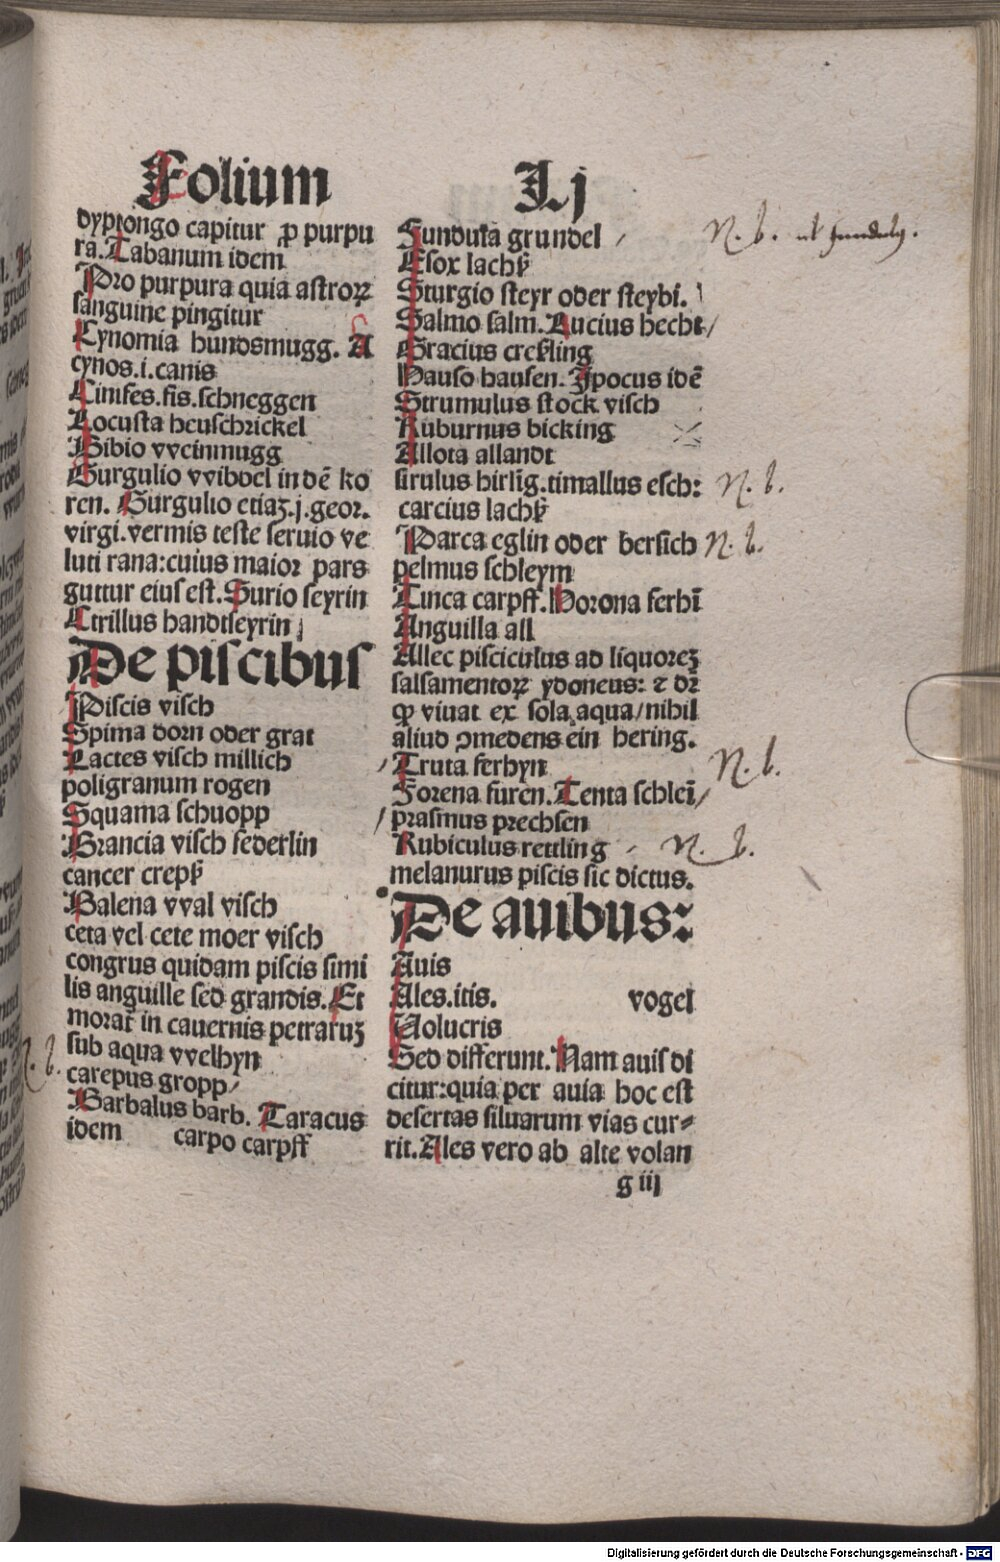 Folium Lj
dyptongo capitur ꝓ purpu
ra. Tabanum idem
Pro purpura quia astroꝝ
sanguine pingitur
Cynomia hundsmugg. A
cynos.i.canis
Cinifes.fis.schneggen
Locusta heuschrickel
Bibio vveinmugg
Gurgulio vvibvel in dē ko
ren. Gurgulio etiaʒ.j.geor.
virgi.vermis teste seruio ve
luti rana:cuius maior pars
guttur eius est.Surio seyrin
Ctrillus handtseyrin
De piscibus
Piscis visch
Spima dorn oder grat
Lactes visch millich
poligranum rogen
Squama schuopp
Brancia visch federlin
cancer crepß
Balena vval visch
ceta vel cete moer visch
congrus quidam piscis simi
lis anguille sed grandis. Et
morat̄ in cauernis petraruʒ
sub aqua vvelhyn
carepus gropp/
Barbalus barb. Taracus
idem carpo carpff
N. b.
Fundula grundel /
Esox lachß
Sturgio steyr oder steybi.
Salmo salm.Lucius hecht/
Gracius creßling
Hauso hausen.Ipocus idē
Strumulus stock visch
Ruburnus bicking
Allota allandt
sirulus hirlīg.timallus esch:
carcius lachß
Parca eglin oder bersich
pelmus schleym
Tinca carpff.Horona ferhī
Anguilla all
Allec pisciculus ad liquoreʒ
salsamentoꝝ ydoneus: ⁊ dꝛ
ꝙ viuat ex sola aqua/nihil
aliud ꝯmedens ein hering.
Truta ferhyn
Forena furen.Tenta schleī/
prasmus prechsen
Rubiculus rettling
melanurus piscis sic dictus.
De auibus:
Auis
Ales.itis. vogel
Uolucris
Sed differunt.Nam auis di
citur:quia per auia hoc est
desertas siluarum vias cur⸗
rit.Ales vero ab alte volan
g iij
N. b.
N. b.
N. b.
N. b.
N. b.
Digitalisierung gefördert durch die Deutsche Forschungsgemeinschaft - DFG